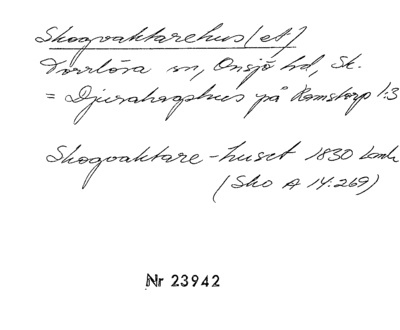 Skogvaktarehus(et)
Torrlösa sn, Onsjö hd, Sk.
= Djurahagshus på Ramstorp 1:3
Skogvaktare-huset 1830 Lomh
(Sko A 14:269)
Nr 23942